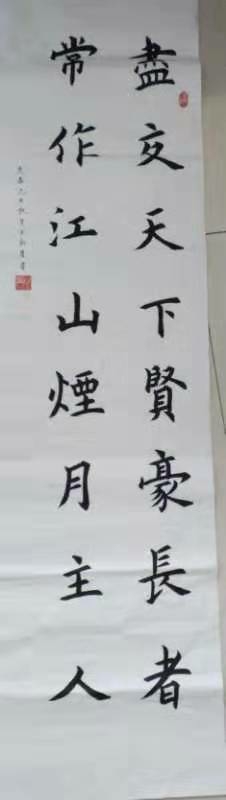 盡交天下賢豪長者
常作江山煙月主人